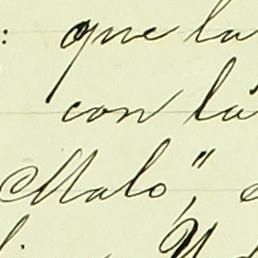 : que la
con la
Malo",